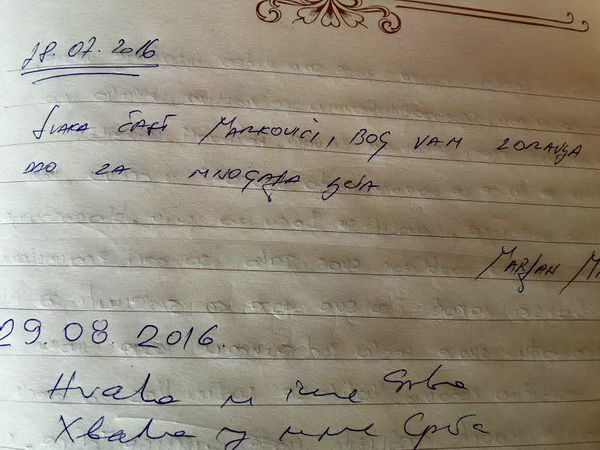 28.07.2016
SVAKA ČAST MARKOVIĆI, BOG VAM ZDRAVLJA
DAO ZA MNOGAJA LJETA
MARJAN
29.08.2016.
Hvala u ime Srba
Хвала у име Срба